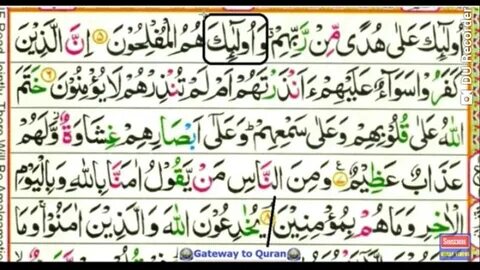 اُولٰٓئِكَ عَلٰى هُدًى مِّنْ رَّبِّهِمْ ۗ وَاُولٰٓئِكَ هُمُ الْمُفْلِحُوْنَ ۝۵ اِنَّ الَّذِيْنَ
كَفَرُوْا سَوَآءٌ عَلَيْهِمْ ءَاَنْذَرْتَهُمْ اَمْ لَمْ تُنْذِرْهُمْ لَا يُؤْمِنُوْنَ ۝۶ خَتَمَ
اللّٰهُ عَلٰى قُلُوْبِهِمْ وَعَلٰى سَمْعِهِمْ ۗ وَعَلٰٓى اَبْصَارِهِمْ غِشَاوَةٌ ۫ وَّلَهُمْ
عَذَابٌ عَظِيْمٌ ۝۷ وَمِنَ النَّاسِ مَنْ يَّقُوْلُ اٰمَنَّا بِاللّٰهِ وَبِالْيَوْمِ
الْاٰخِرِ وَمَا هُمْ بِمُؤْمِنِيْنَ ۝۸ يُخٰدِعُوْنَ اللّٰهَ وَالَّذِيْنَ اٰمَنُوْا ۚ وَمَا
Gateway to Quran
SUBSCRIBE
DU Recorder